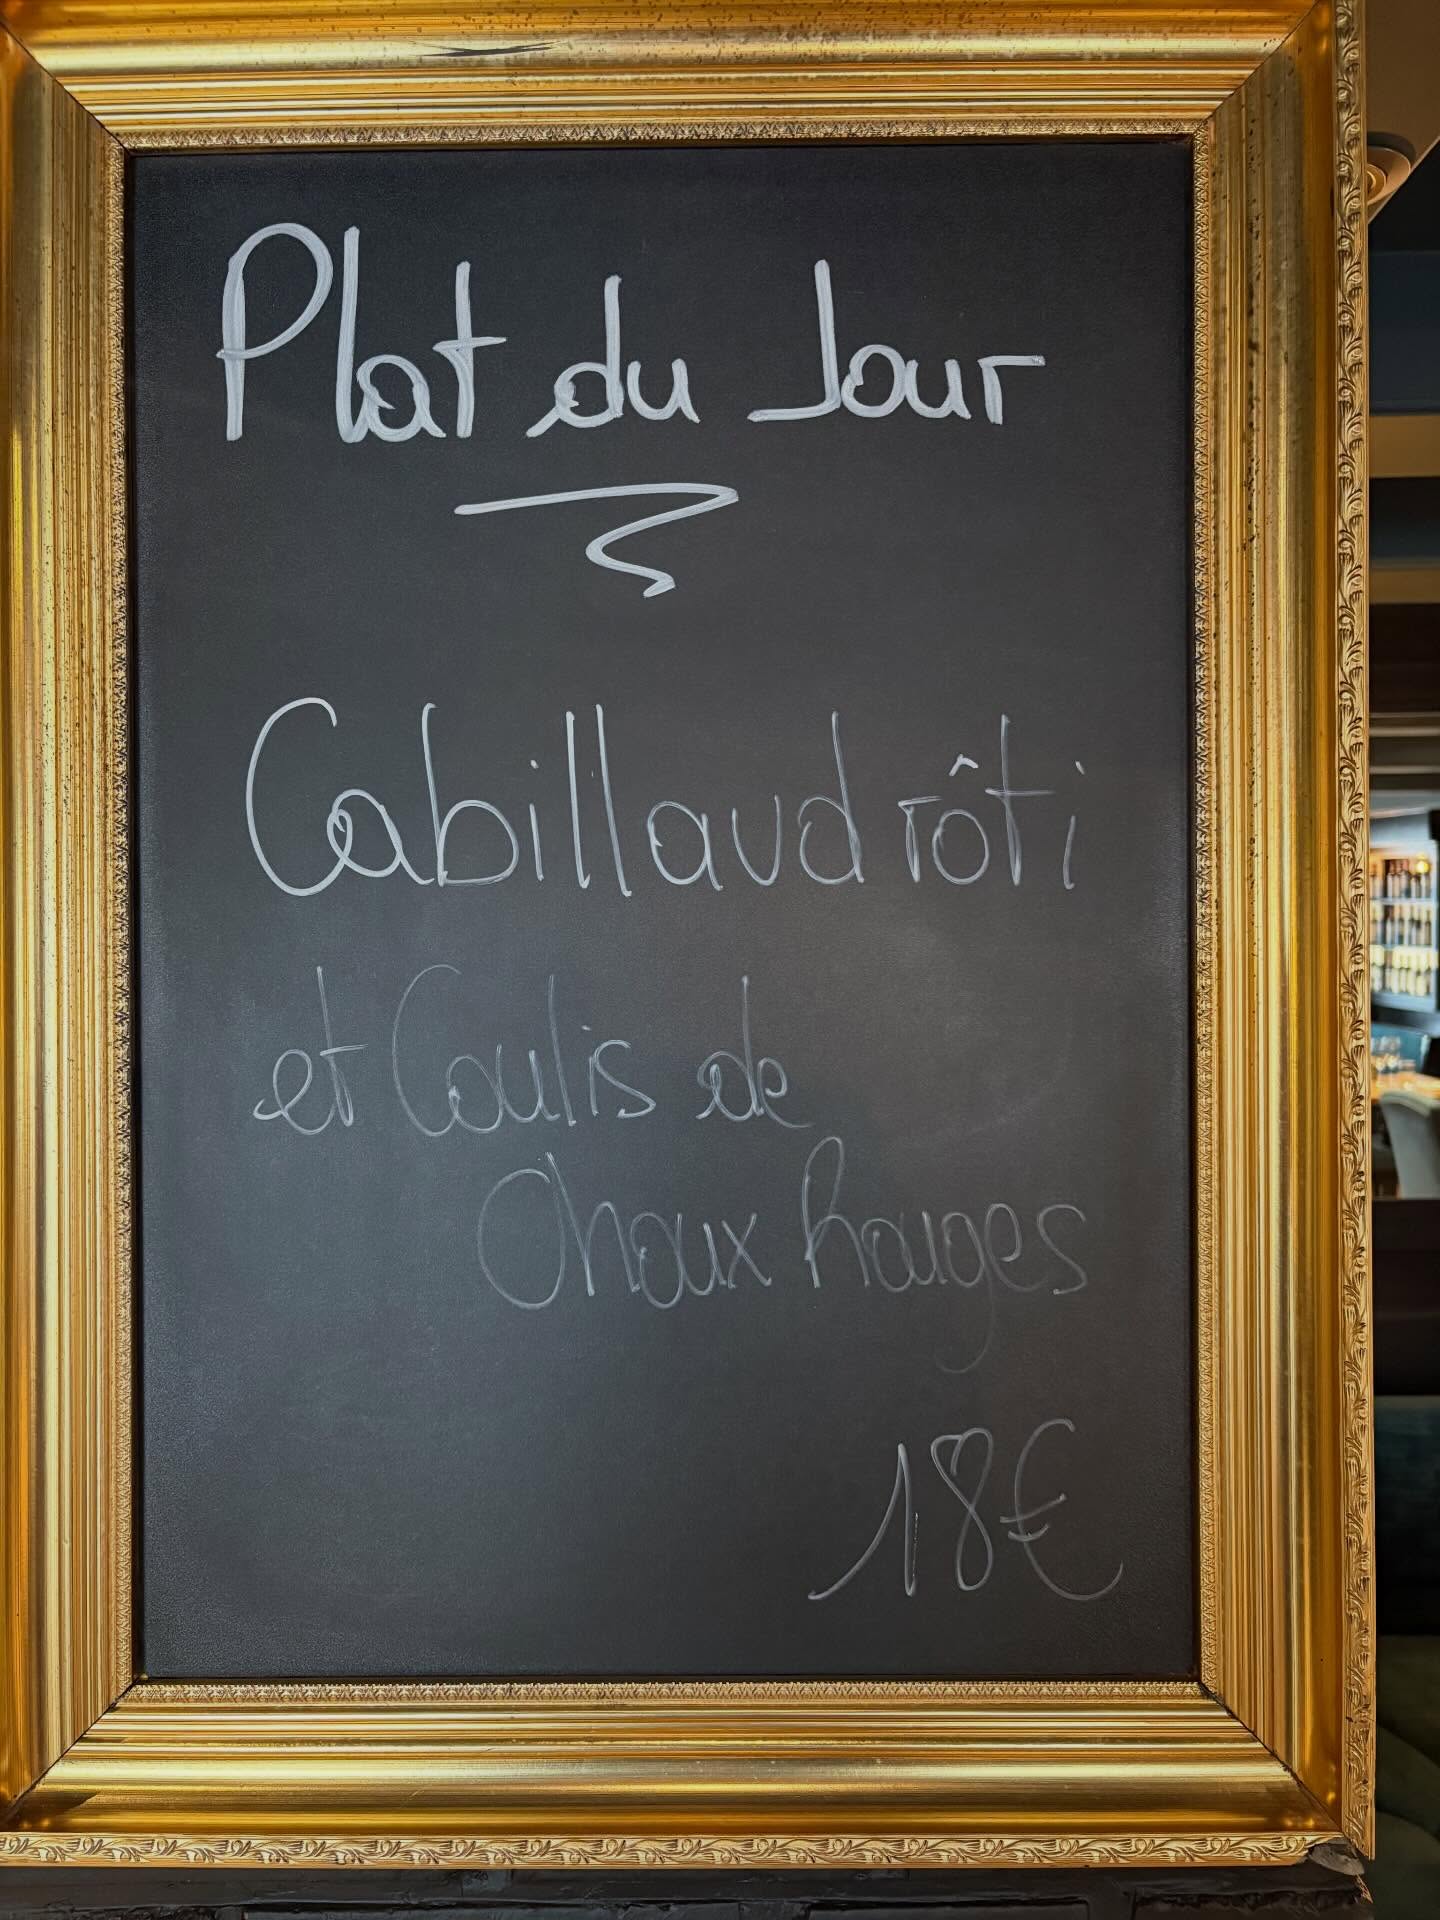 Plat du Jour
Cabillaud rôti
et Coulis de
Choux Rouges
18€